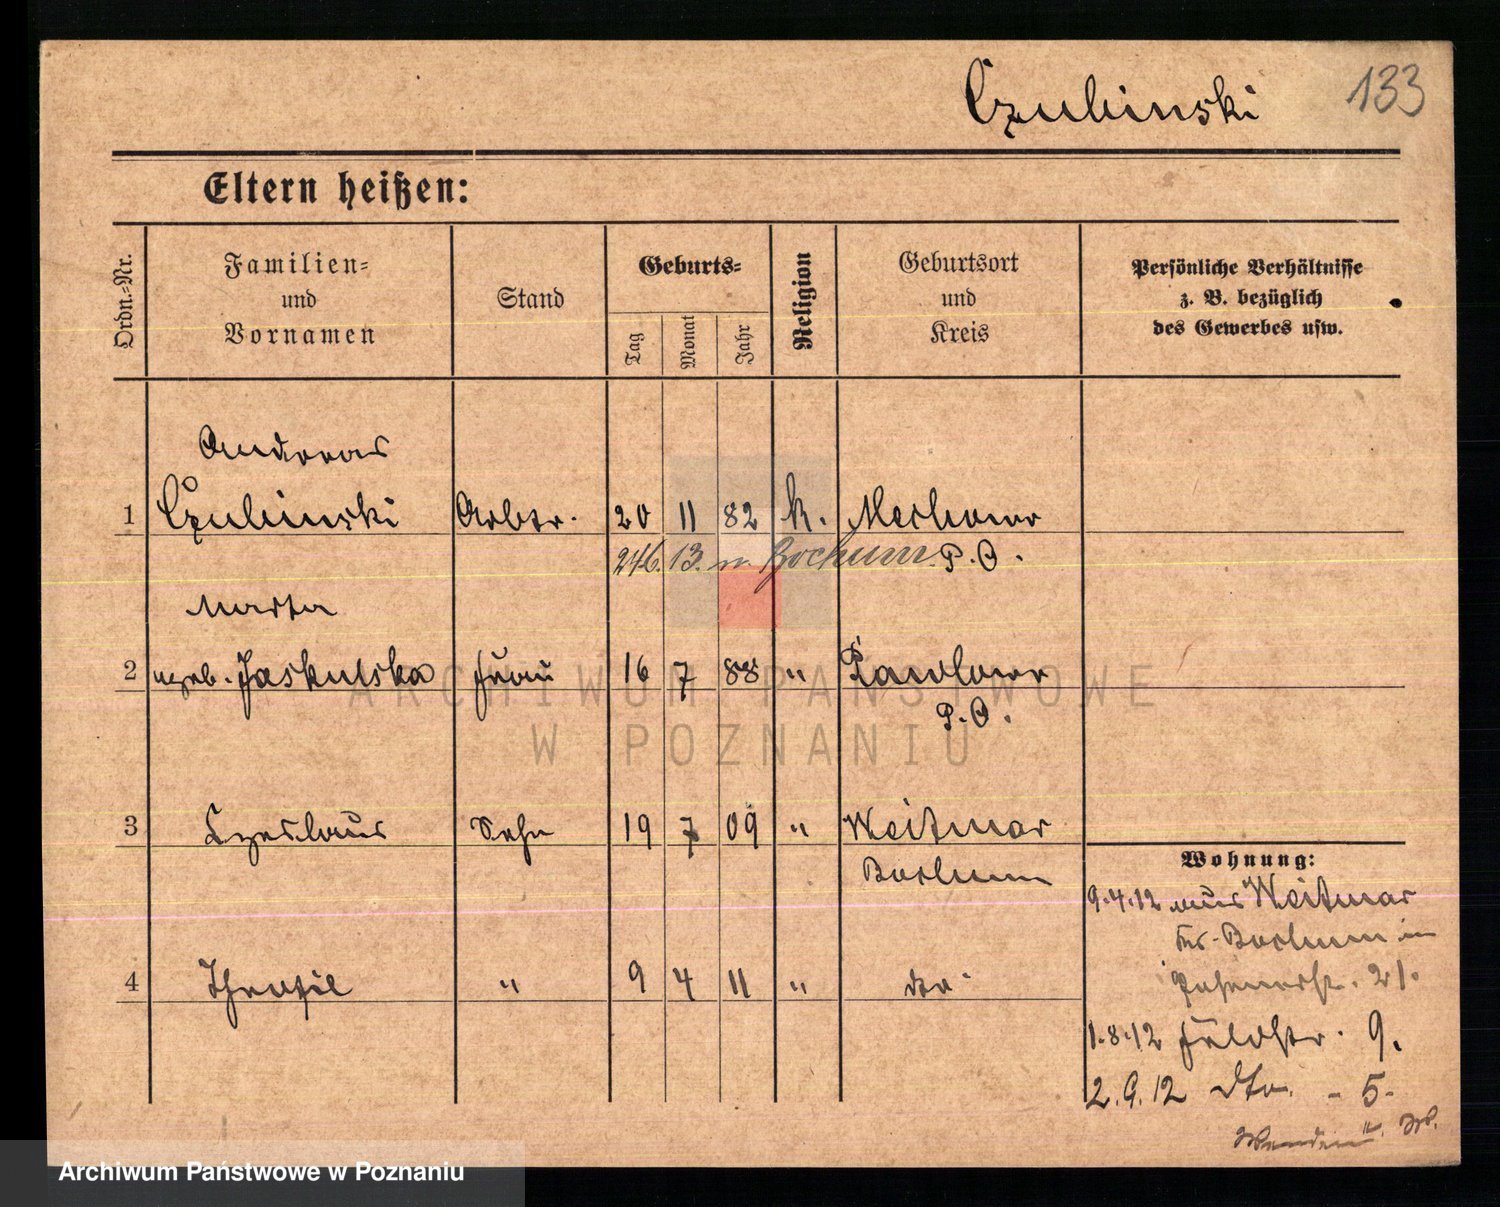 Czubinski 133
Eltern heißen:
Ordn.-Nr.
Familien-
und
Vornamen
Stand
Geburts-
Tag
Monat
Jahr
Religion
Geburtsort
und
Kreis
Persönliche Verhältnisse
z. B. bezüglich
des Gewerbes usw.
Andreas
1 Czubinski Arbtr. 20 11 82 k.
24/6. 13. n. Bochum. P. O.
Marta
2 geb. Jaskulska Frau 16 7 88 "
P. O.
3 Czeslaus Sohn 19 7 09 " Weitmar
Bochum
4 Theofil " 9 4 11 " dto
Wohnung:
9.4.12 aus Weitmar
Krs. Bochum in
Posenerstr. 21.
1.8.12 Feldstr. 9.
2.9.12 dto. - 5.
ARCHIWUM PAŃSTWOWE
W POZNANIU
Archiwum Państwowe w Poznaniu